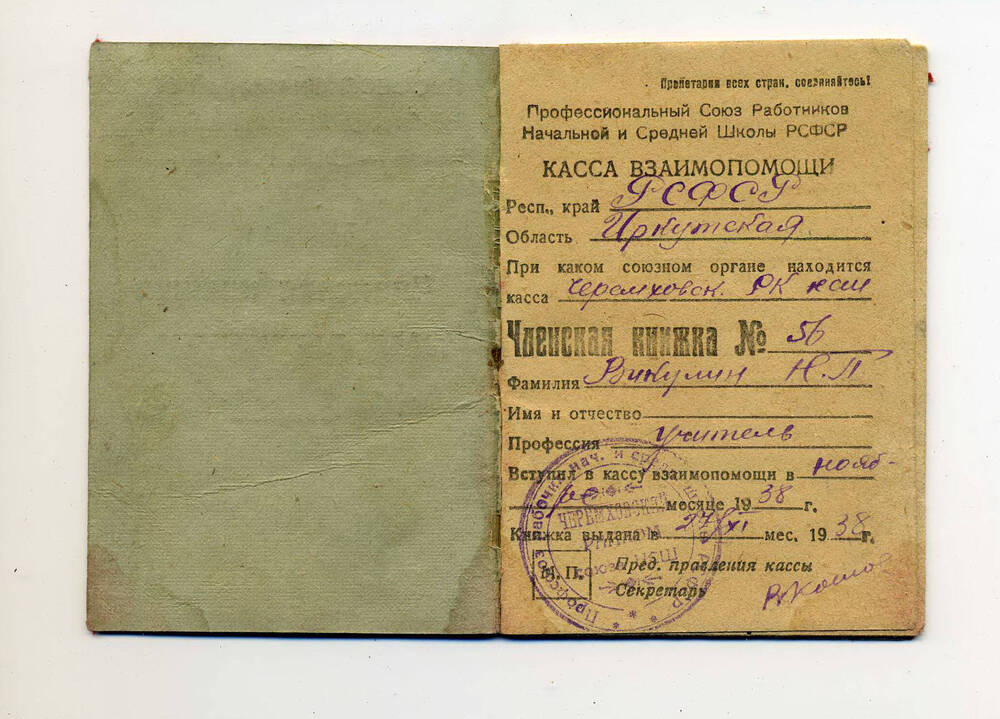 Пролетарии всех стран, соединяйтесь!
Профессиональный Союз Работников
Начальной и Средней Школы РСФСР
КАССА ВЗАИМОПОМОЩИ
Респ., край РСФСР
Область Иркутская
При каком союзном органе находится
касса Черемховск. РК нсш
Членская книжка № 56
Фамилия Викулин Н.П
Имя и отчество
Профессия учитель
Вступил в кассу взаимопомощи в нояб-
ре месяце 1938 г.
Книжка выдана в 27/XI мес. 1938 г.
М.П. Пред. правления кассы
Секретарь
Профсоюз рабочих нач. и сред.
ЧЕРЕМХОВСКИЙ
РАЙКОМ